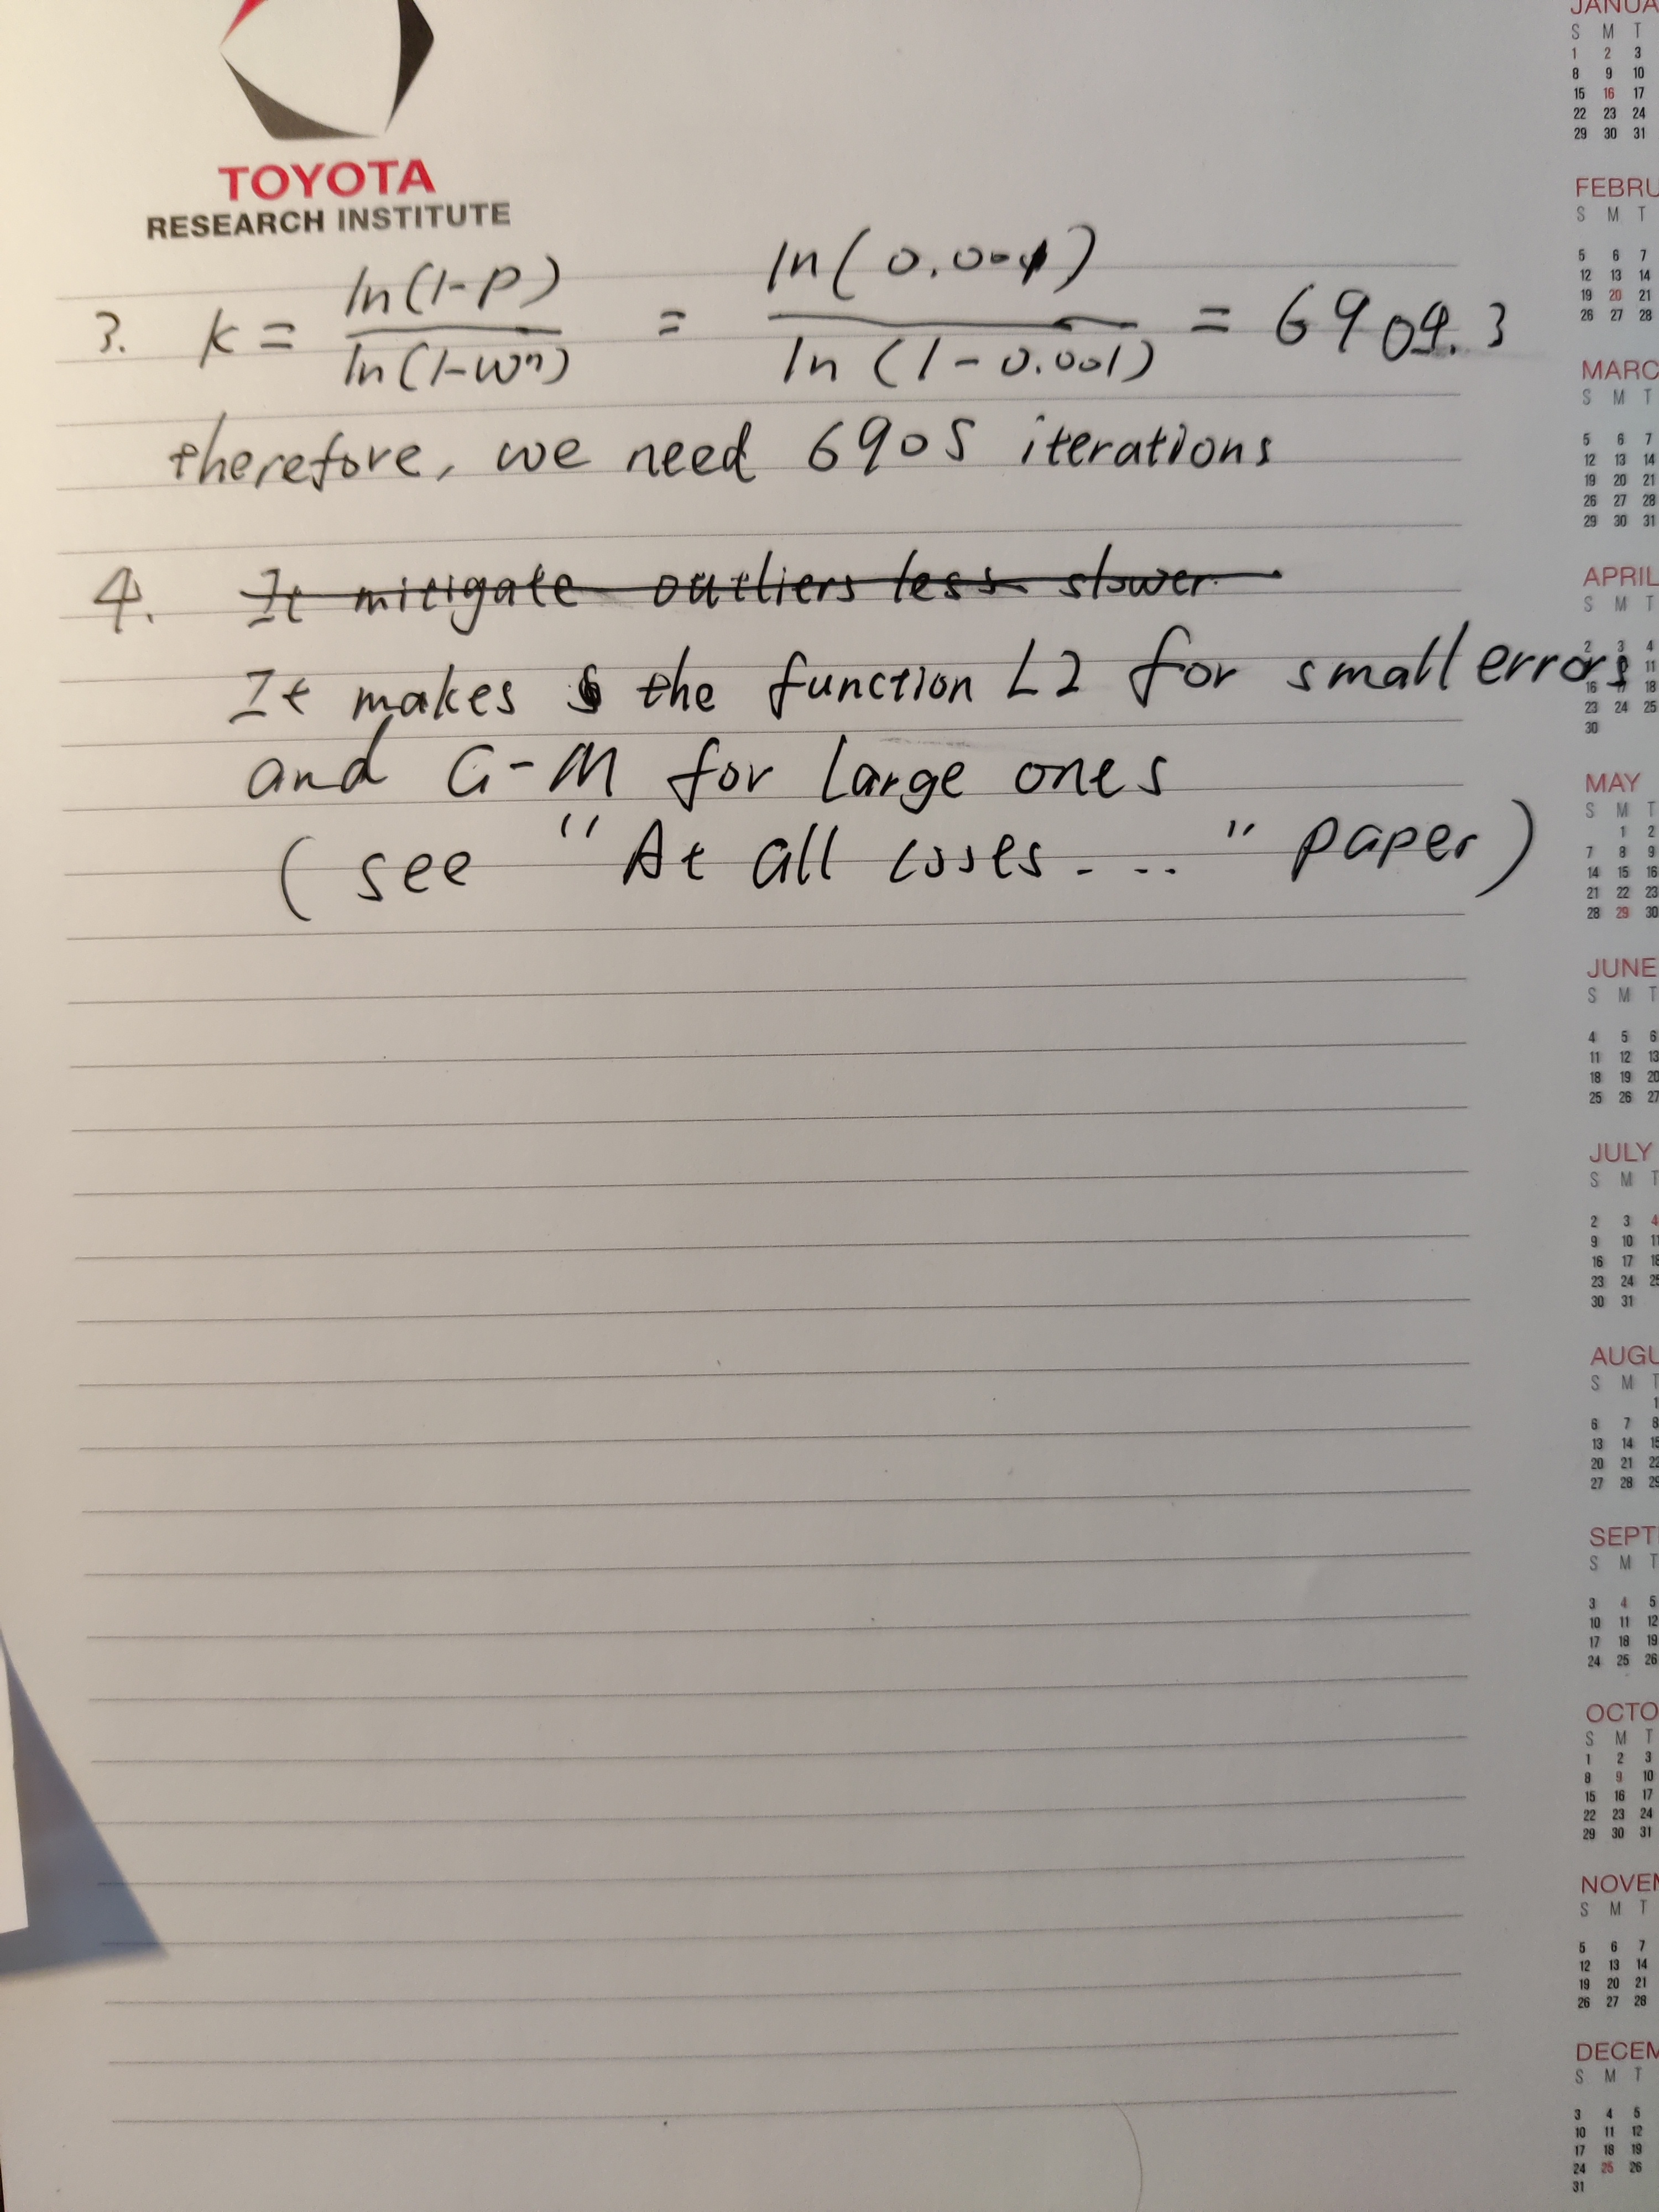 TOYOTA
RESEARCH INSTITUTE
3. k = ln(1-p) / ln(1-wⁿ) = ln(0.001) / ln(1-0.001) = 6904.3
therefore, we need 6905 iterations
4. It mitigate outliers less slower.
It makes the function L2 for small errors
and G-M for large ones
(see "At all coses...." paper)
JANUA
S M T
1 2 3
8 9 10
15 16 17
22 23 24
29 30 31
FEBRU
S M T
5 6 7
12 13 14
19 20 21
26 27 28
MARC
S M T
5 6 7
12 13 14
19 20 21
26 27 28
29 30 31
APRIL
S M T
2 3 4
11
16 17 18
23 24 25
30
MAY
S M T
1 2
7 8 9
14 15 16
21 22 23
28 29 30
JUNE
S M T
4 5 6
11 12 13
18 19 20
25 26 27
JULY
S M T
2 3 4
9 10 11
16 17 18
23 24 25
30 31
AUGU
S M T
1
6 7 8
13 14 15
20 21 22
27 28 29
SEPT
S M T
3 4 5
10 11 12
17 18 19
24 25 26
OCTO
S M T
1 2 3
8 9 10
15 16 17
22 23 24
29 30 31
NOVEM
S M T
5 6 7
12 13 14
19 20 21
26 27 28
DECEM
S M T
3 4 5
10 11 12
17 18 19
24 25 26
31